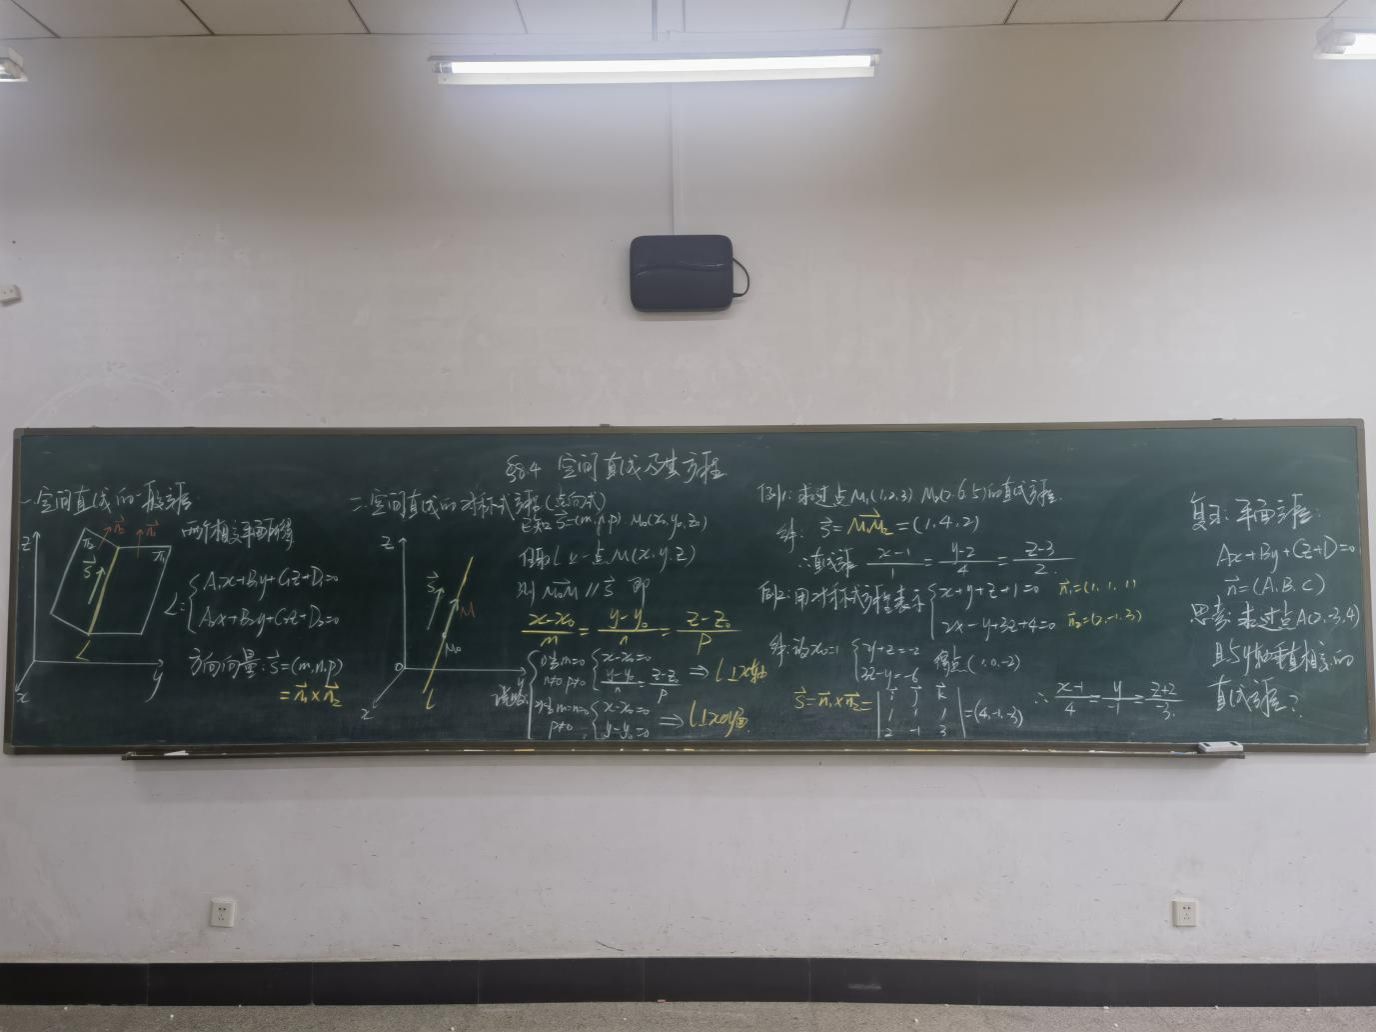 §8.4 空间直线及其方程
一.空间直线的一般方程
z
π₂
n⃗₂
n⃗₁
π₁
s⃗
L
x
y
两个相交平面所得
L: { A₁x+B₁y+C₁z+D₁=0
A₂x+B₂y+C₂z+D₂=0
方向向量: s⃗=(m,n,p)
=n⃗₁×n⃗₂
二.空间直线的对称式方程(点向式)
z
s⃗
M
M₀
O
y
x
L
已知 s⃗=(m,n,p). M₀(x₀,y₀,z₀)
任取L上一点M(x,y,z)
则 M₀M⃗ // s⃗ 即
(x-x₀)/m = (y-y₀)/n = (z-z₀)/p
说明:
①当m=0 { x-x₀=0
n≠0 p≠0 (y-y₀)/n = (z-z₀)/p ⇒ L⊥x轴
②当m=n=0 { x-x₀=0
p≠0 y-y₀=0 ⇒ L⊥xoy面.
例1: 求过点M₁(1,2,3) M₂(2,6,5)的直线方程.
解: s⃗=M₁M₂⃗=(1,4,2)
∴直线方程 (x-1)/1 = (y-2)/4 = (z-3)/2
例2: 用对称式方程表示 { x+y+z+1=0 n⃗₁=(1,1,1)
2x-y+3z+4=0 n⃗₂=(2,-1,3)
解: 设x₀=1 { y+z=-2
3z-y=-6 得点(1,0,-2)
s⃗=n⃗₁×n⃗₂= | i⃗ j⃗ k⃗
1 1 1
2 -1 3 | =(4,-1,-3) ∴ (x-1)/4 = y/-1 = (z+2)/-3
复习: 平面方程:
Ax+By+Cz+D=0
n⃗=(A,B,C)
思考: 求过点A(2,-3,4)
且与y轴垂直相交的
直线方程?